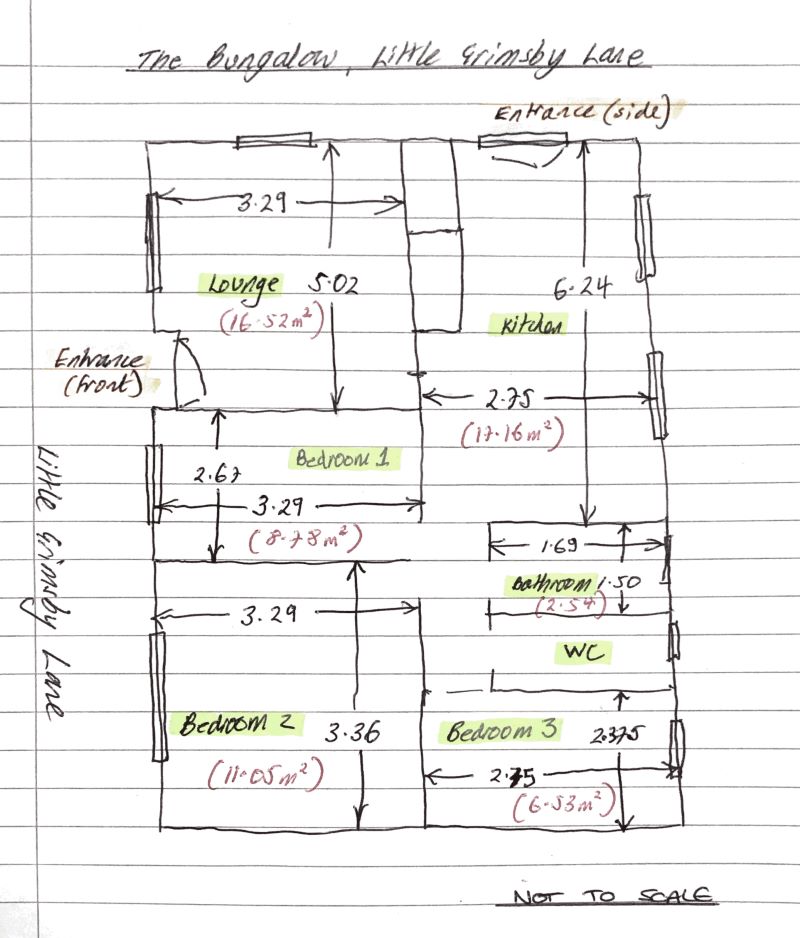 The Bungalow, Little Grimsby Lane
Entrance (side)
3.29
Lounge 5.02
(16.52m²)
6.24
Kitchen
Entrance
(front)
2.75
(17.16m²)
Bedroom 1
2.67
3.29
(8.78m²)
1.69
Bathroom 1.50
(2.54)
3.29
WC
Little Grimsby Lane
Bedroom 2 3.36
(11.05m²)
Bedroom 3 2.375
2.75
(6.53m²)
NOT TO SCALE